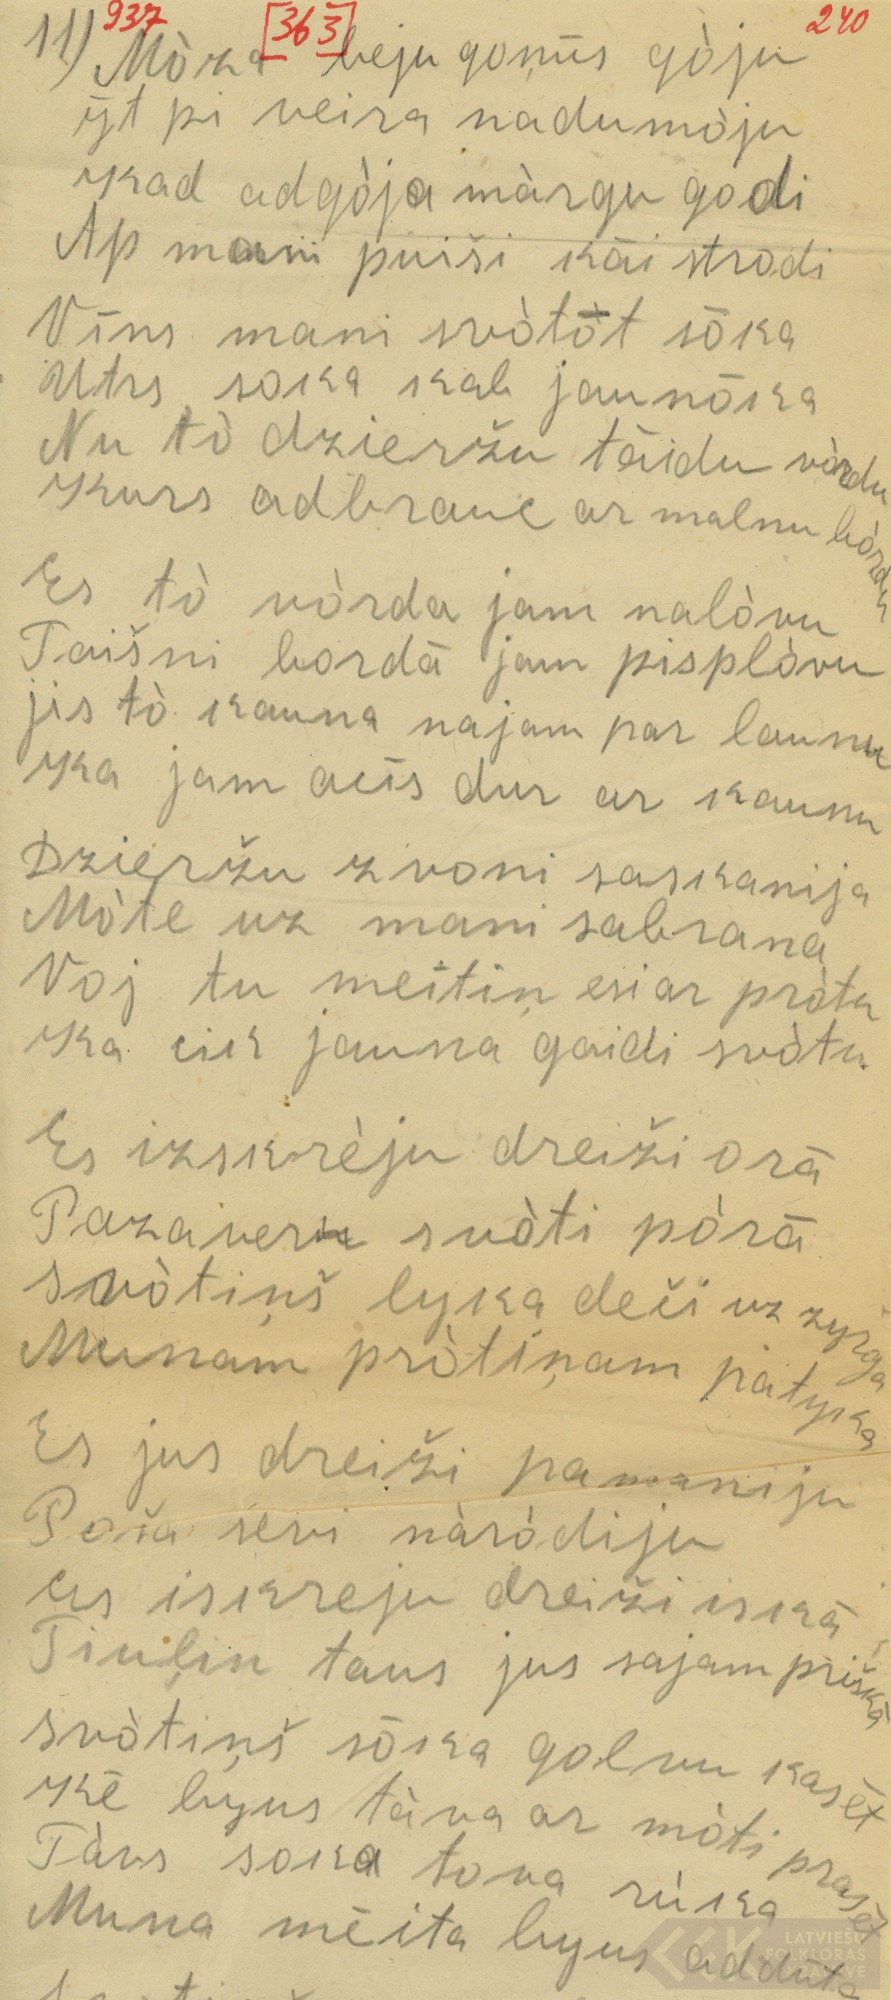 937 [363] 240
11) Mòza beju goņūs gòju
ȳt pi veira nadumòju
Kad adgòja màrgu godi
Ap mani puiši kāi strodi
Vīns mani svòtòt sōka
Utrs soka kab jaunōka
Nu tò dzieržu tāidu vòrdu
Kurs adbrauc ar malnu bòrdu
Es tò vòrda jam nalòvu
Taišni bordā jam pisplòvu
jis tò kauna najam par launu
Ka jam acīs dur ar kaunu
Dzieržu zvoni saskanija
Mòte uz mani sabrana
Voj tu meitiņ esi ar pròtu
Ka cik jauna gaidi svòtu
Es izskrèju dreiži orā
Pazaveru svòti pòrā
Svòtiņš lyka deči uz zyrga
Munam pròtiņam patyka
Es jus dreiži pamaniju
Poša sevi nàròdiju
Es iskreju dreiži iskā
Tiuļin taus jus sajam priškā
svòtiņš sōka golvu kasēt
Kē byus tàva ar mòti prasēt
Tàvs soka tova rùka
Muna mēita byus addùta
LATVIEŠU
FOLKLORAS
KRĀTUVE